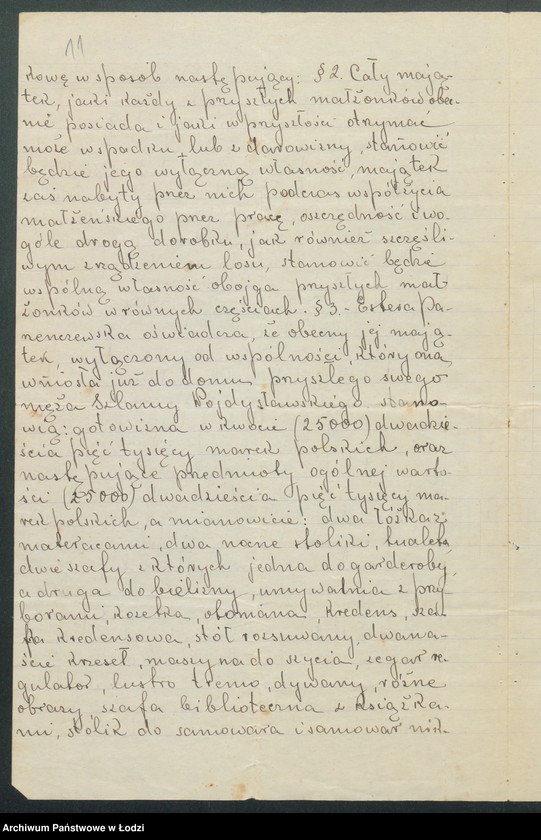 11
kową w sposób następujący: § 2. Cały mają-
tek, jaki każdy z przyszłych małżonków obec-
nie posiada i jaki w przyszłości otrzymać
może w spadku lub z darowizny, stanowić
będzie jego wyłączną własność, majątek
zaś nabyty przez nich podczas współżycia
małżeńskiego przez pracę, oszczędność i wo-
góle drogą dorobku, jak również szczęśli-
wym zrządzeniem losu, stanowić będzie
wspólną własność obojga przyszłych mał-
żonków w równych częściach. § 3. - Estera Pa-
renczewska oświadcza, że obecny jej mają-
tek, wyłączony od wspólności, który ona
wniosła już do domu przyszłego swego
męża Szlamy Wojdysławskiego stano-
wią: gotowizna w kwocie (25000) dwadzie-
ścia pięć tysięcy marek polskich, oraz
następujące przedmioty ogólnej warto-
ści (25000) dwadzieścia pięć tysięcy ma-
rek polskich, a mianowicie: dwa łóżka z
materacami, dwa nocne stoliki, tualeta,
dwie szafy z których jedna do garderoby,
a druga do bielizny, umywalnia z przy-
borami, kozetka, otomana, kredens, sza-
fa kredensowa, stół rozsuwany, dwana-
ście krzeseł, maszyna do szycia, zegar re-
gulator, lustro tremo, dywany, różne
obrazy, szafa biblioteczna z książka-
mi, stolik do samowara i samowar nik-
Archiwum Państwowe w Łodzi